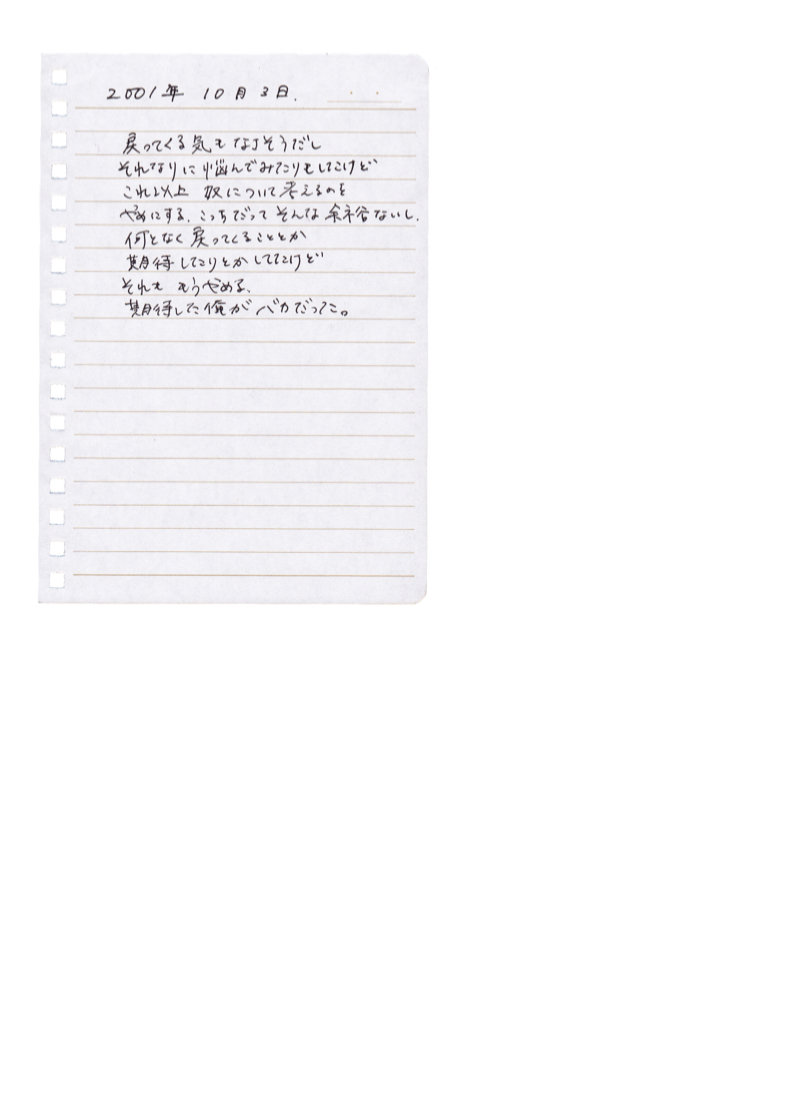 2001年 10月3日.
戻ってくる気もなさそうだし
それなりに悩んでみたりもしてたけど
これ以上 奴について考えるのを
やめにする. こっちだって そんな 余裕ないし.
何となく戻ってくることとか
期待してたりとかしてたけど
それも もうやめる.
期待した俺がバカだった。